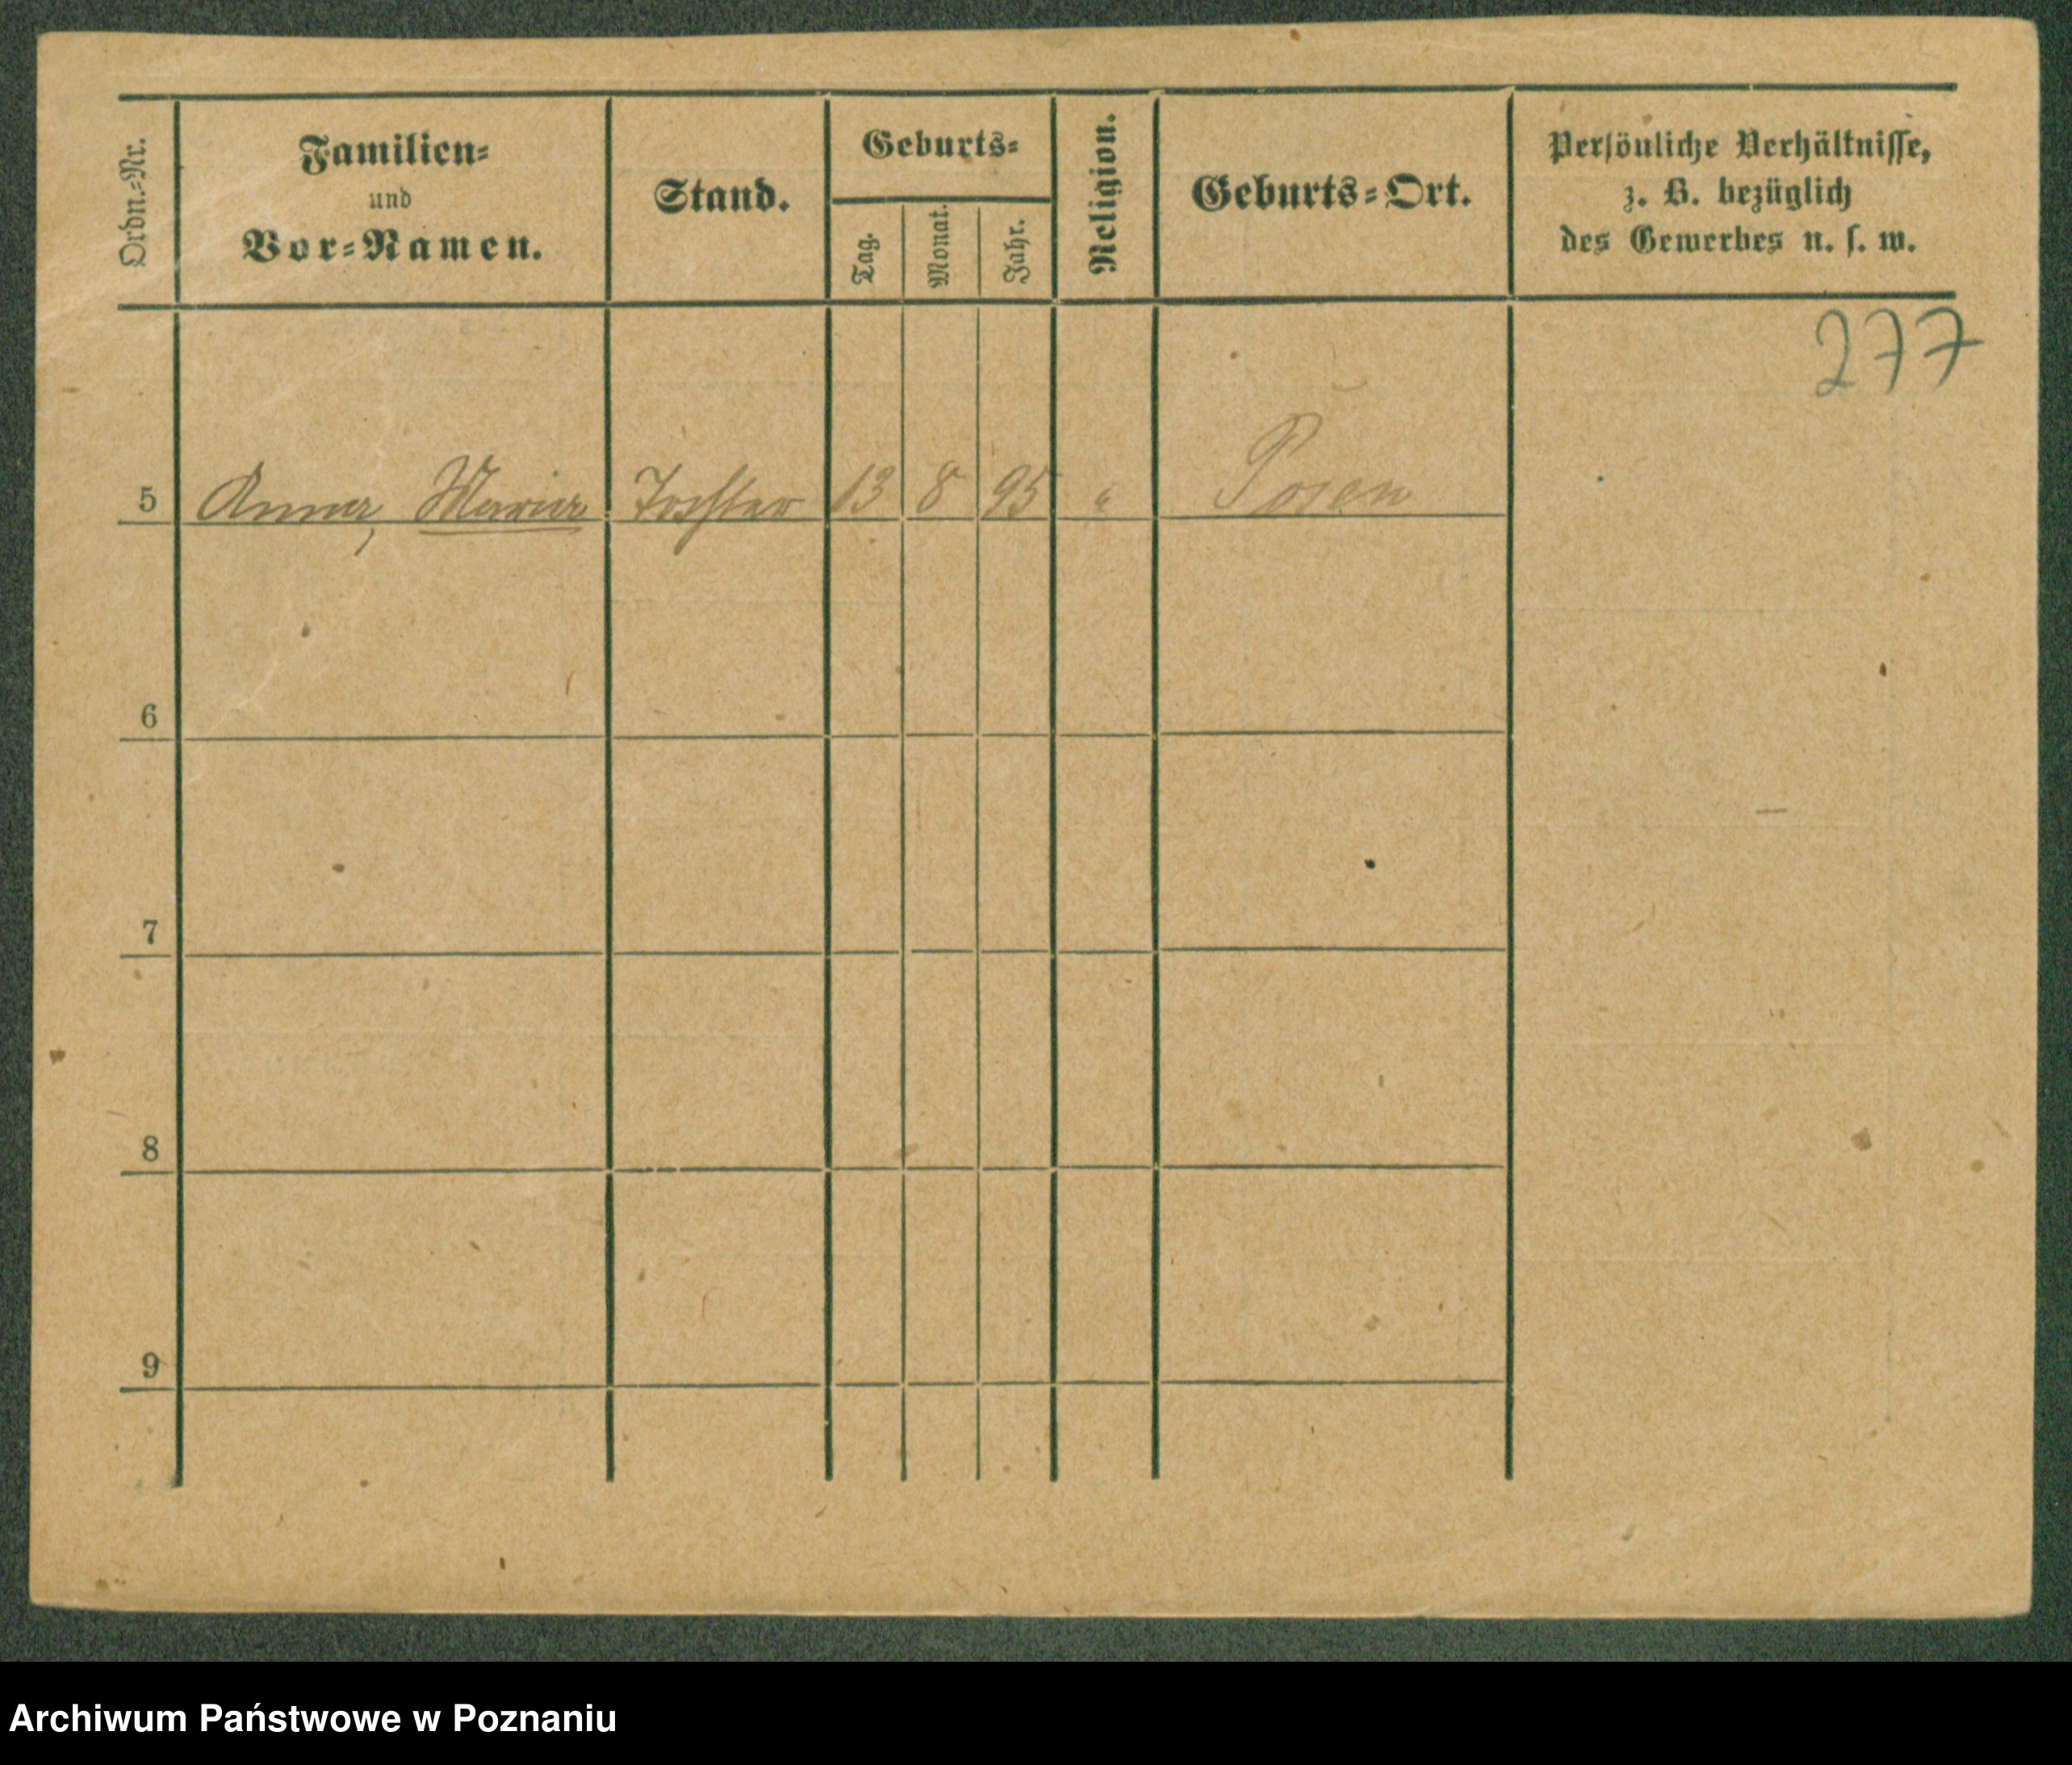 Ordn.=Nr.
Familien=
und
Vor=Namen.
Stand.
Geburts=
Tag.
Monat.
Jahr.
Religion.
Geburts=Ort.
Persönliche Verhältnisse,
z. B. bezüglich
des Gewerbes u. s. w.
277
5 Anna, Maria Tochter 13 8 95 " Posen
6
7
8
9
Archiwum Państwowe w Poznaniu